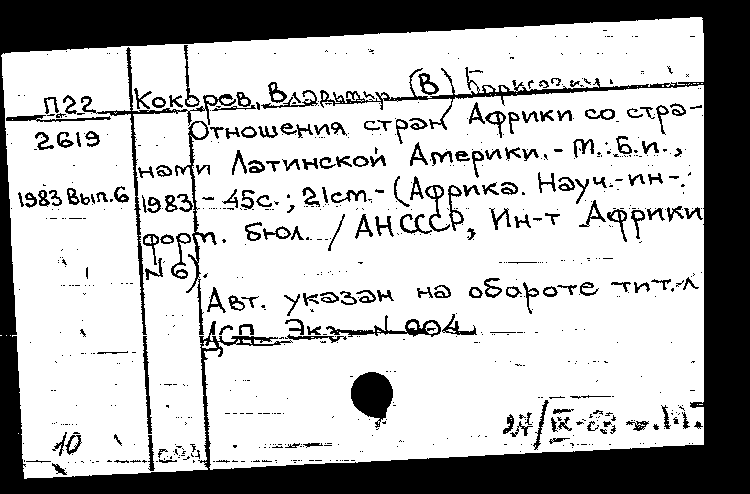 П22 Кокорев, Владимир (В) Борисович.
2619 Отношения стран Африки со стра-
нами Латинской Америки. - М.: Б.и.,
1983 Вып.6 1983 - 45с.; 21см - (Африка. Науч.-ин-
форм. бюл. / АН СССР, Ин-т Африки
N 6).
Авт. указан на обороте тит. л
ДСП Экз. N 004
10